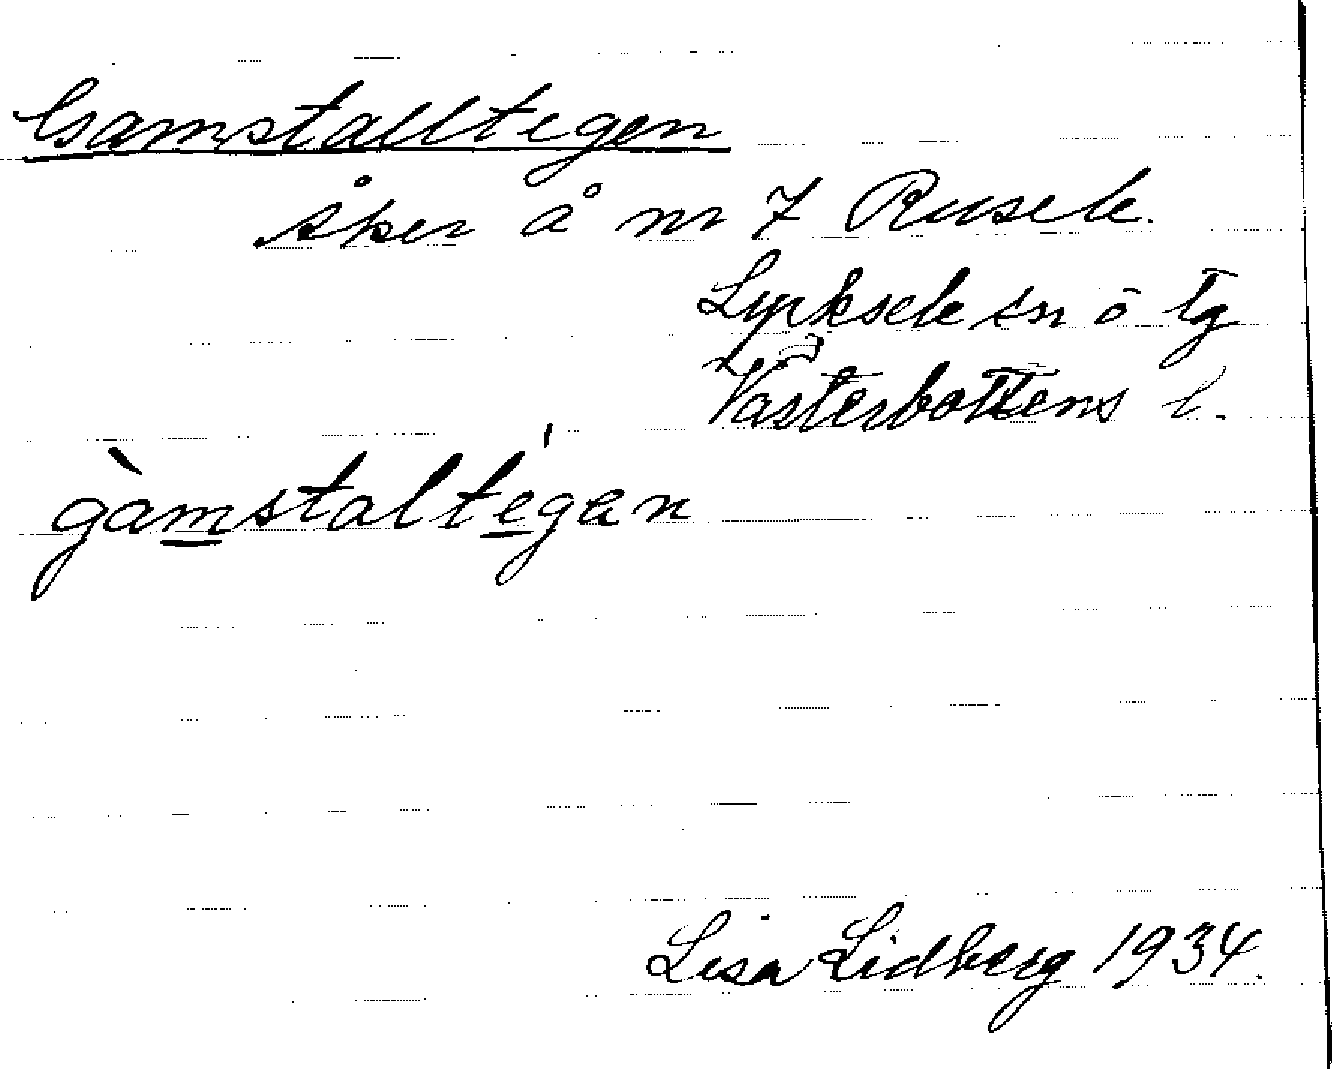 Gamstalltegen
åker å nr 7 Rusele.
Lycksele sn o tg
Västerbottens l.
gàmstaltégan
Lisa Lidberg 1934.